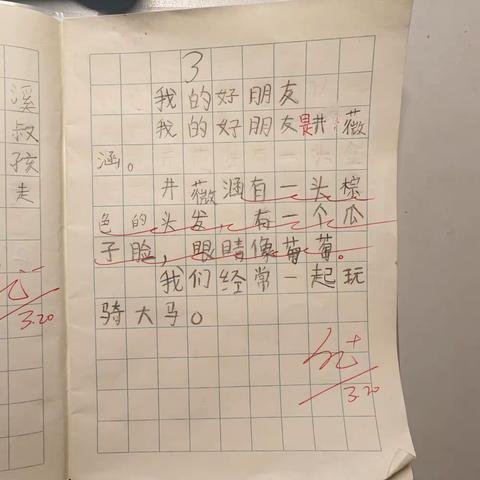 溪
叔
孩
走
3.20
3
我的好朋友
我的好朋友是井薇
涵。
井薇涵有一头棕
色的头发，有一个瓜
子脸，眼睛像葡萄。
我们经常一起玩
骑大马。
优+
3.20